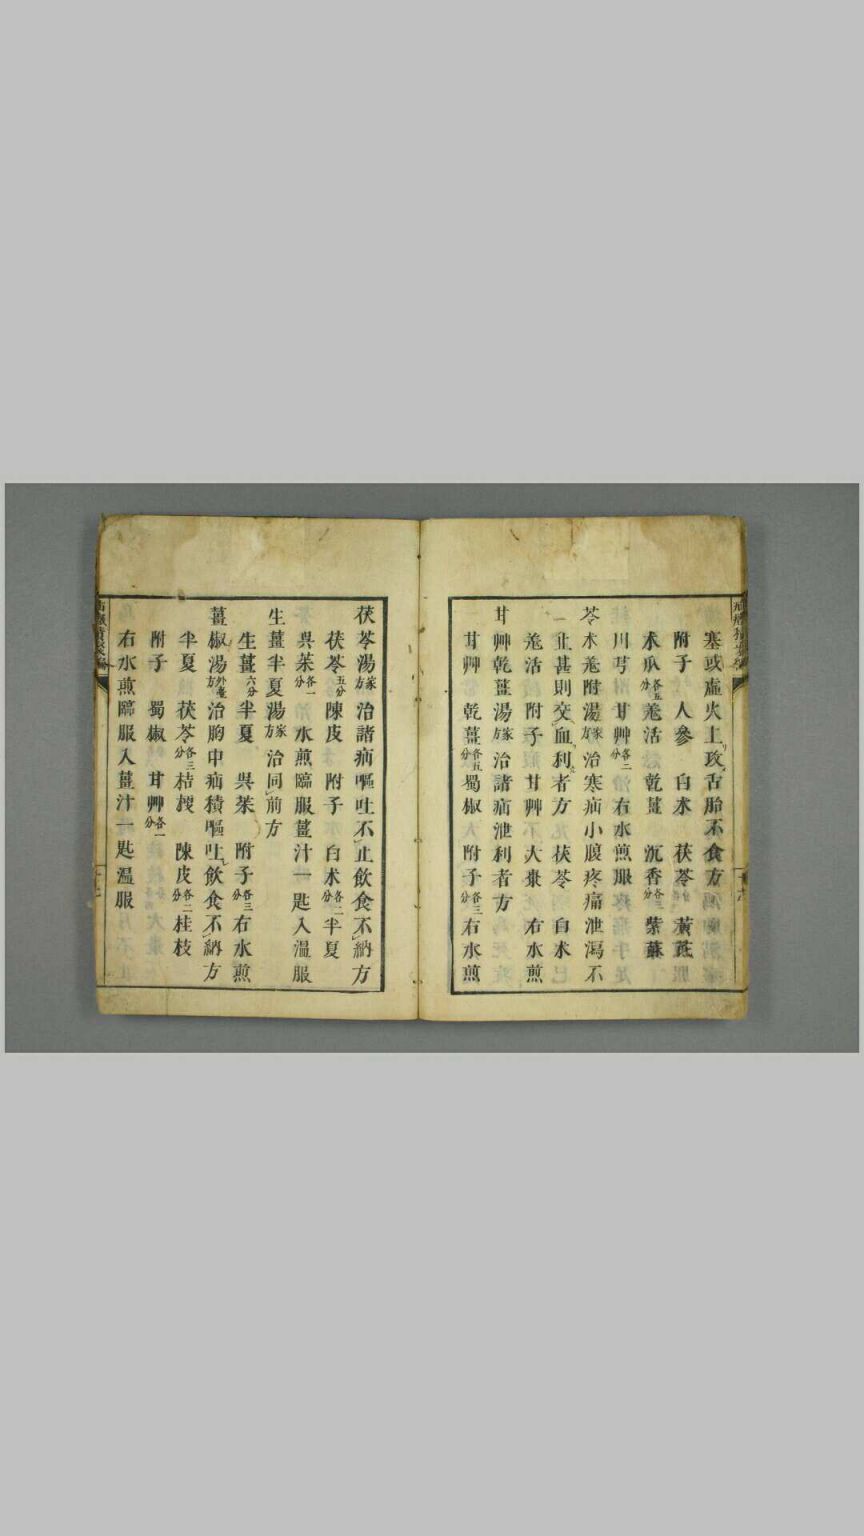 塞或虛火上攻舌胎不食方
附子 人參 白朮 茯苓 黃茋
木瓜各五分羗活 乾薑 沉香各分紫蘇
川芎 甘艸各二分 右水煎服
苓朮羗附湯家方治寒疝小腹疼痛泄瀉不
止甚則交血利者方 茯苓 白朮
羗活 附子 甘艸 大棗 右水煎
甘艸乾薑湯家方治諸疝泄利者方
甘艸 乾薑各五分蜀椒 附子各三分右水煎
茯苓湯家方治諸疝嘔吐不止飲食不納方
茯苓五分陳皮 附子 白朮各二分半夏
吳茱各一分 水煎臨服薑汁一匙入溫服
生薑半夏湯家方治同前方
生薑六分半夏 吳茱 附子各三分右水煎
薑椒湯外臺方治胸中疝積嘔吐飲食不納方
半夏 茯苓各三分桔梗 陳皮各二分桂枝
附子 蜀椒 甘艸各一分
右水煎臨服入薑汁一匙溫服